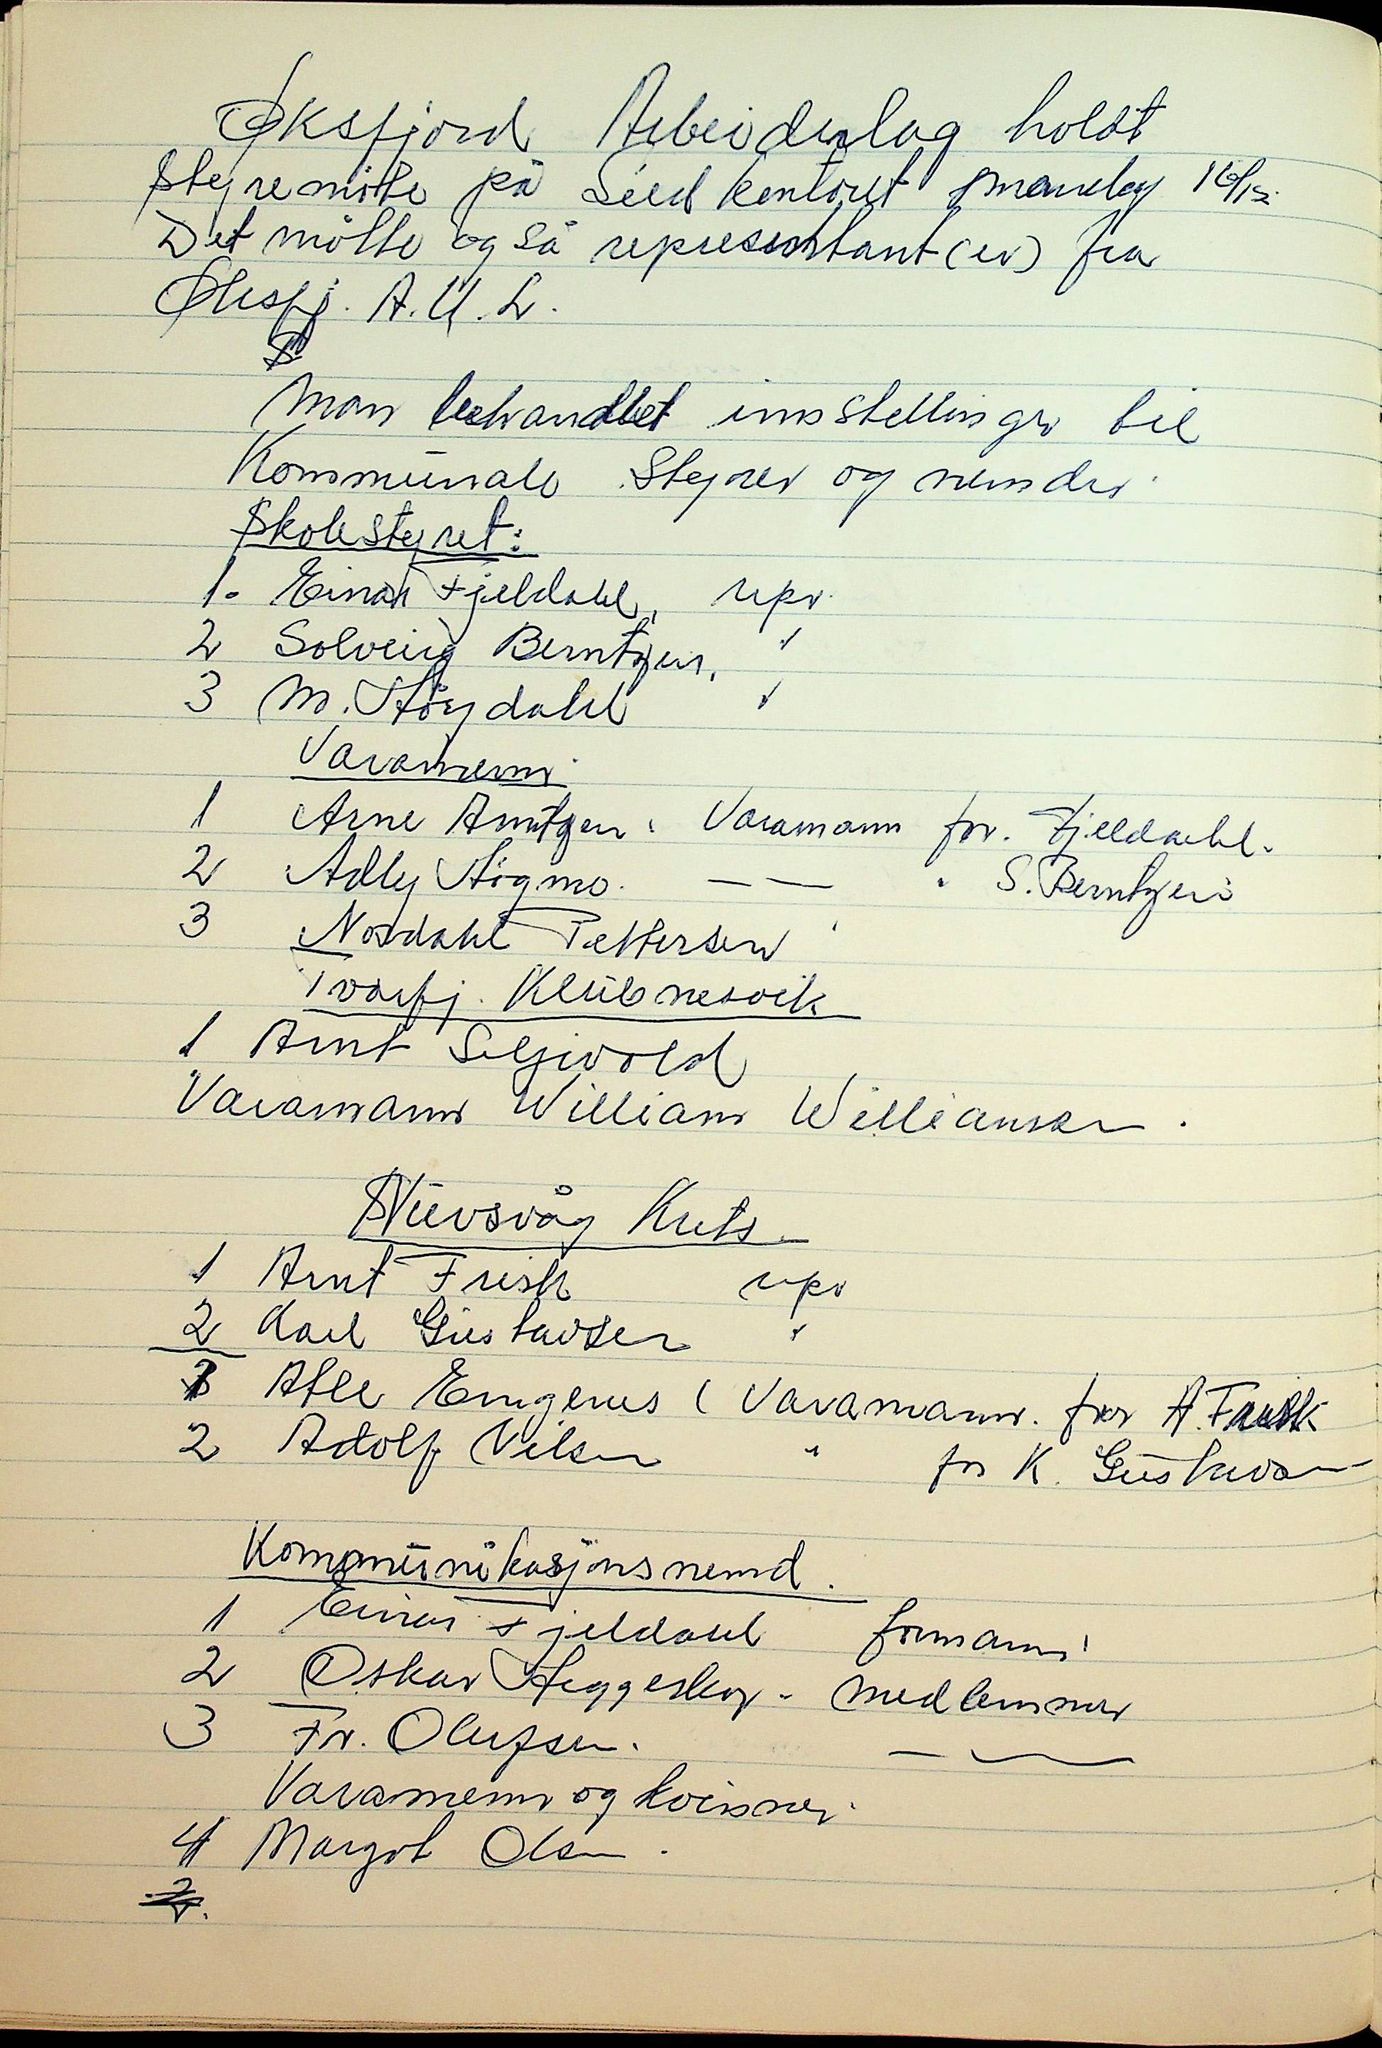 Øksfjord Arbeiderlag holdt
Styremöte på Sild kontoret mandag 16/12
Det mötte også representant(er) fra
Øksfj. A.U.L.
Man behandlet innstillinger til
Kommunale Styrer og nemder
Skolestyret:
1. Einar Fjeldahl, repr
2 Solveig Berntzen, "
3 M. Høydahl "
Varamenn
1 Arne Arntzen: Varamann for. Fjelldahl.
2 Adly Högmo. — — " S. Berntzen
3 Nordahl Pettersen "
Tvorfj. Klubnesvik
1 Arnt Seljevold
Varamann William Williamsen.
Nuvsvåg Krets
1 Arnt Frisk repr
2 Karl Gustavsen "
1 Atle Emgenes ( Varamann. for A. Frisk
2 Adolf Nilsen " for K. Gustavsen
Kommunikasjonsnemd.
1 Einar Fjeldahl formann
2 Oskar Heggeskog. medlemmer
3 Fr. Olufsen. — —
Varamenn og kvinner.
1 Margot Olsen.
2.